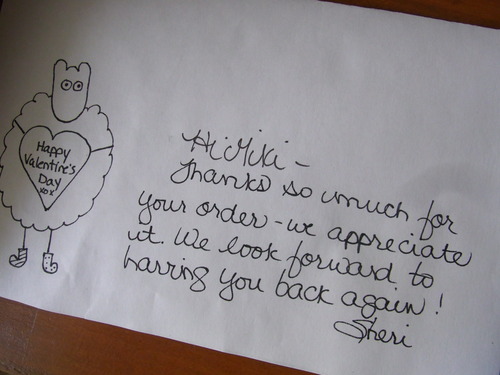 Happy
Valentine's
Day
xox
Hi Miki -
Thanks so much for
your order - we appreciate
it. We look forward to
having you back again!
Sheri